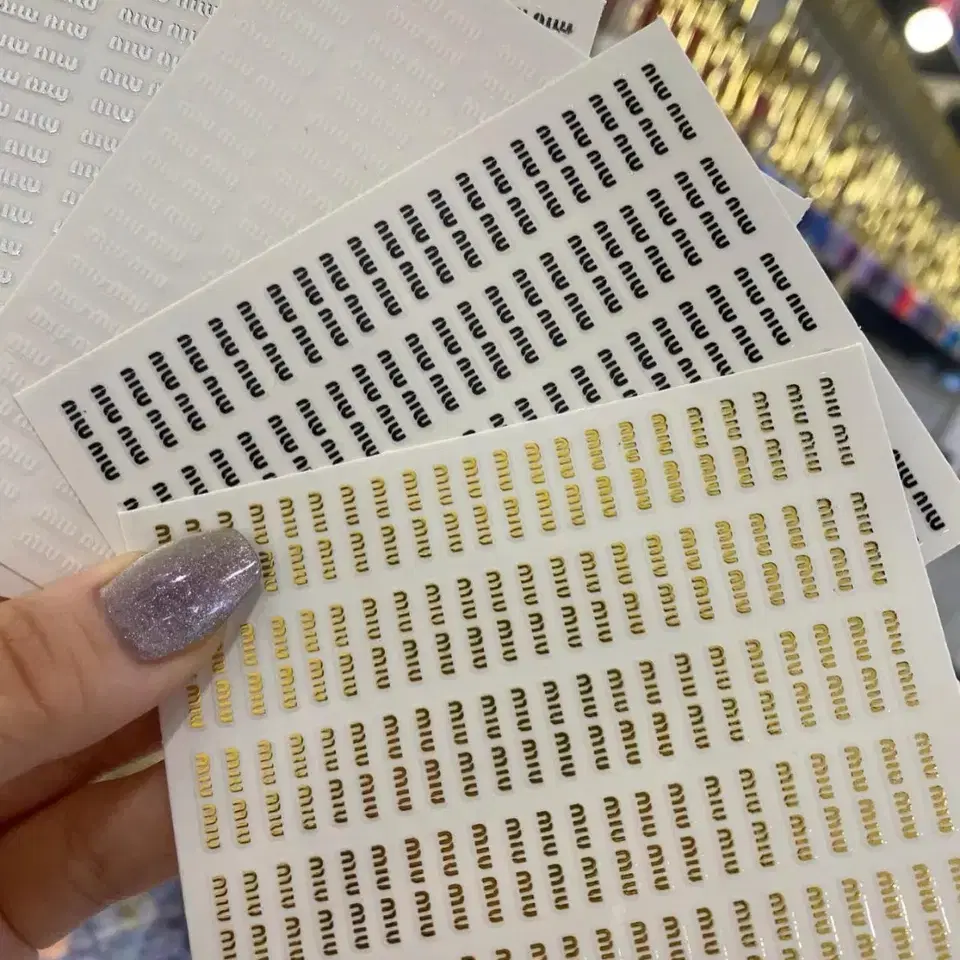 miu miu